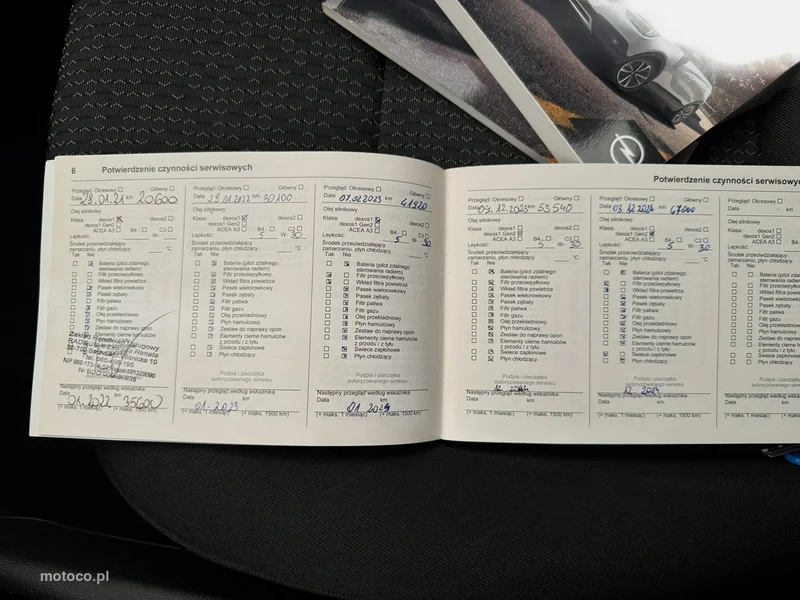 6 Potwierdzenie czynności serwisowych
Przegląd: Okresowy Główny
Data 29.01.21 km 20600
Olej silnikowy
Klasa: dexos1 dexos2
dexos1 Gen2 B4 C3
ACEA A3
Lepkość: W-
Środek przeciwdziałający
zamarzaniu, płyn chłodzący °C
Tak Nie
Bateria (pilot zdalnego
sterowania radiem)
Filtr przeciwpyłkowy
Wkład filtra powietrza
Pasek wielorowkowy
Pasek zębaty
Filtr paliwa
Filtr gazu
Olej przekładniowy
Płyn hamulcowy
Zestaw do naprawy opon
Elementy cierne hamulców
Następny przegląd według wskaźnika
Data km
01.2022 35600
(+ maks. 1 miesiąc) (+ maks. 1500 km)
Przegląd: Okresowy Główny
Data 29.01.2022 km 30.100
Olej silnikowy
Klasa: dexos1 dexos2
dexos1 Gen2
ACEA A3 B4- C3
Lepkość: 5 W- 30
Środek przeciwdziałający
zamarzaniu, płyn chłodzący °C
Tak Nie
Bateria (pilot zdalnego
sterowania radiem)
Filtr przeciwpyłkowy
Wkład filtra powietrza
Pasek wielorowkowy
Pasek zębaty
Filtr paliwa
Filtr gazu
Olej przekładniowy
Płyn hamulcowy
Zestaw do naprawy opon
Elementy cierne hamulców
z przodu / z tyłu
Świece zapłonowe
Płyn chłodzący
Podpis i pieczątka
autoryzowanego serwisu
Następny przegląd według wskaźnika
Data km
01-2023
(+ maks. 1 miesiąc) (+ maks. 1500 km)
Przegląd: Okresowy Główny
Data 07.02.2023 km 41920
Olej silnikowy
Klasa: dexos1 dexos2
dexos1 Gen2
ACEA A3 B4- C3
Lepkość: 5 W- 30
Środek przeciwdziałający
zamarzaniu, płyn chłodzący °C
Tak Nie
Bateria (pilot zdalnego
sterowania radiem)
Filtr przeciwpyłkowy
Wkład filtra powietrza
Pasek wielorowkowy
Pasek zębaty
Filtr paliwa
Filtr gazu
Olej przekładniowy
Płyn hamulcowy
Zestaw do naprawy opon
Elementy cierne hamulców
z przodu / z tyłu
Świece zapłonowe
Płyn chłodzący
Podpis i pieczątka
autoryzowanego serwisu
Następny przegląd według wskaźnika
Data km
01 2024
(+ maks. 1 miesiąc) (+ maks. 1500 km)
Potwierdzenie czynności serwisowych
Przegląd: Okresowy Główny
12.2023 km 53540
Olej silnikowy
Klasa: dexos1 dexos2
dexos1 Gen2
ACEA A3 B4- C3
Lepkość: 5 W- 30
Środek przeciwdziałający
zamarzaniu, płyn chłodzący °C
Tak Nie
Bateria (pilot zdalnego
sterowania radiem)
Filtr przeciwpyłkowy
Wkład filtra powietrza
Pasek wielorowkowy
Pasek zębaty
Filtr paliwa
Filtr gazu
Olej przekładniowy
Płyn hamulcowy
Zestaw do naprawy opon
Elementy cierne hamulców
z przodu / z tyłu
Świece zapłonowe
Płyn chłodzący
Podpis i pieczątka
autoryzowanego serwisu
12 2024
Następny przegląd według wskaźnika
Data km
(+ maks. 1 miesiąc) (+ maks. 1500 km)
Przegląd: Okresowy Główny
Data 03.12.2024 km
Olej silnikowy
Klasa: dexos1 dexos2
dexos1 Gen2
ACEA A3 B4- C3
Lepkość: 5 W- 30
Środek przeciwdziałający
zamarzaniu, płyn chłodzący °C
Tak Nie
Bateria (pilot zdalnego
sterowania radiem)
Filtr przeciwpyłkowy
Wkład filtra powietrza
Pasek wielorowkowy
Pasek zębaty
Filtr paliwa
Filtr gazu
Olej przekładniowy
Płyn hamulcowy
Zestaw do naprawy opon
Elementy cierne hamulców
z przodu / z tyłu
Świece zapłonowe
Płyn chłodzący
Podpis i pieczątka
autoryzowanego serwisu
Następny przegląd według wskaźnika
Data km
(+ maks. 1 miesiąc) (+ maks. 1500 km)
Przegląd: Okresowy
Data km
Olej silnikowy
Klasa: dexos1
dexos1 Gen2
ACEA A3
Lepkość:
Środek przeciwdziałający
zamarzaniu, płyn chłodzący
Tak Nie
Następny przegląd według
Data
(+ maks. 1 miesiąc)
motoco.pl